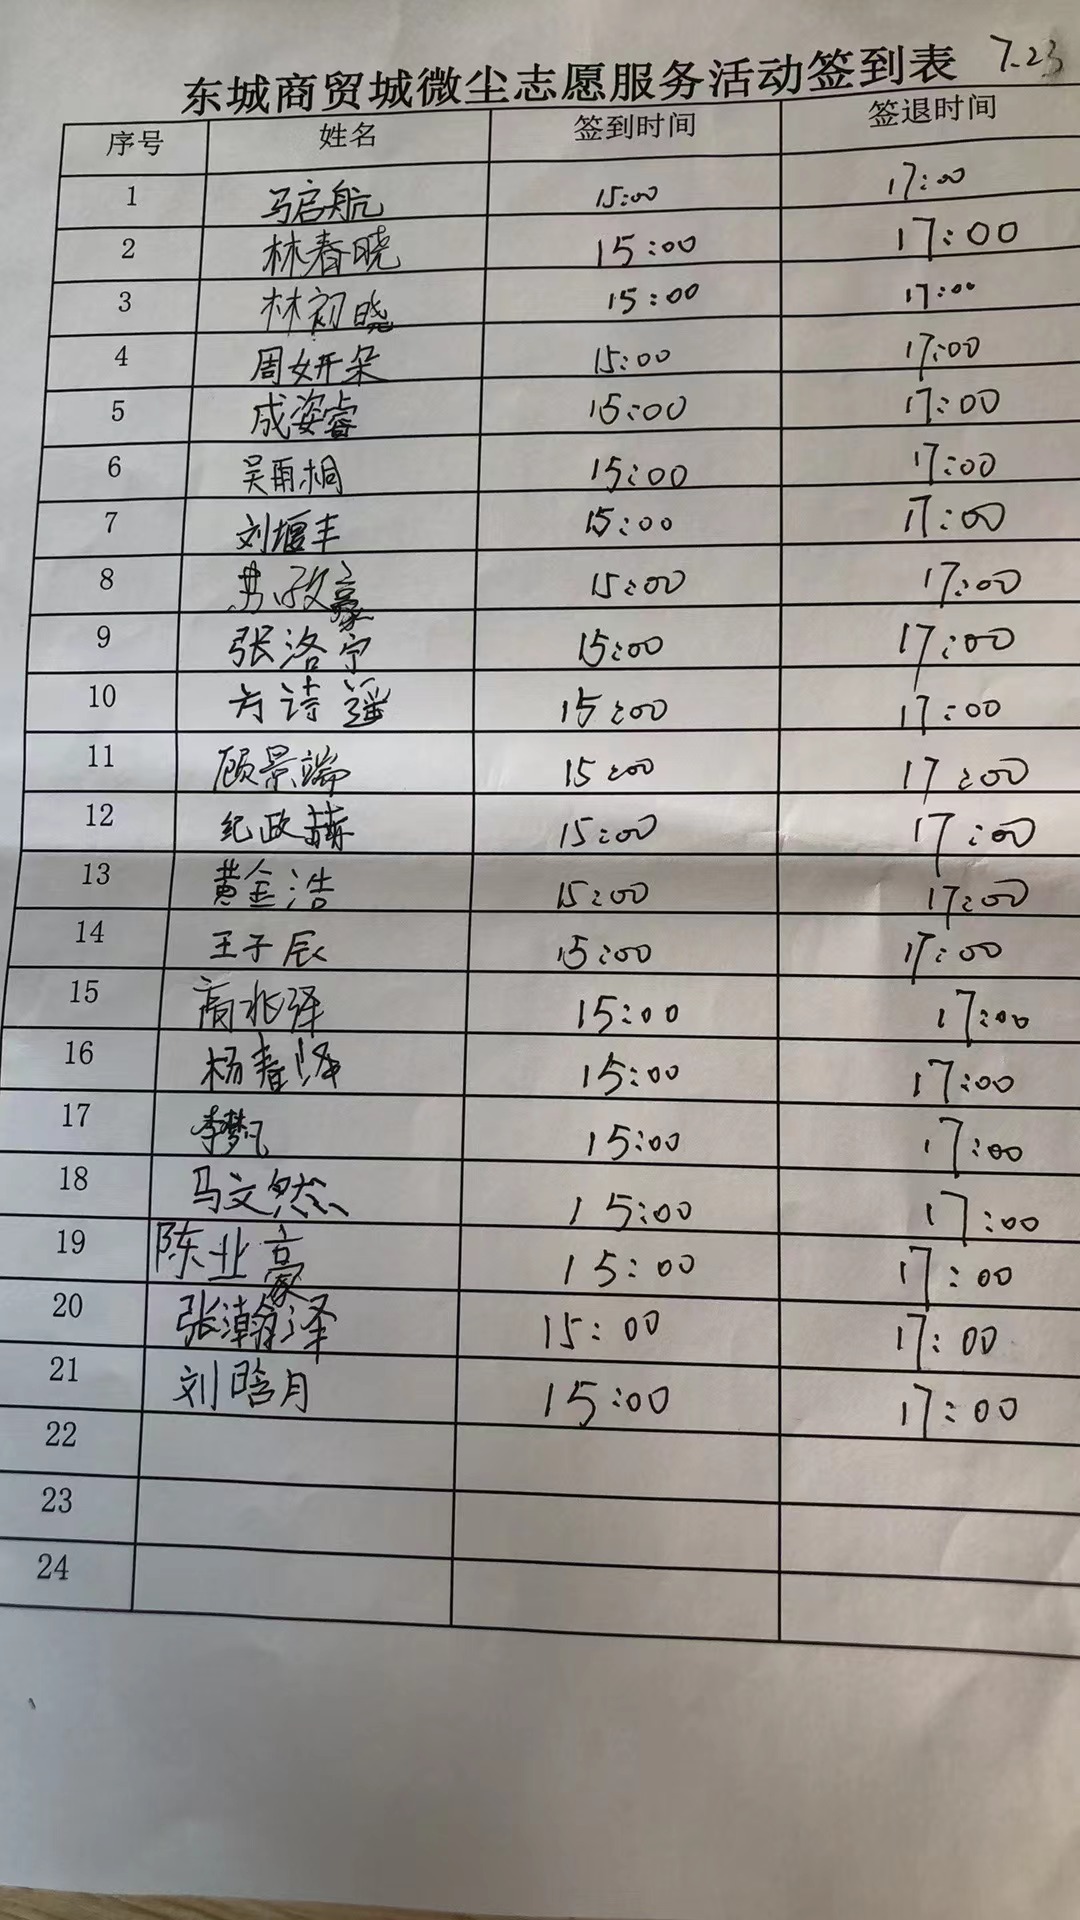 东城商贸城微尘志愿服务活动签到表 7.23
序号 姓名 签到时间 签退时间
1 马启航 15:00 17:00
2 林春晓 15:00 17:00
3 林初晓 15:00 17:00
4 周妍朵 15:00 17:00
5 成姿睿 15:00 17:00
6 吴雨桐 15:00 17:00
7 刘堰丰 15:00 17:00
8 15:00 17:00
9 张洛宁 15:00 17:00
10 方诗遥 15:00 17:00
11 顾景端 15:00 17:00
12 纪政赫 15:00 17:00
13 黄金浩 15:00 17:00
14 王子辰 15:00 17:00
15 高兆泽 15:00 17:00
16 杨春泽 15:00 17:00
17 李梦凡 15:00 17:00
18 马文然 15:00 17:00
19 陈业豪 15:00 17:00
20 张瀚泽 15:00 17:00
21 刘晗月 15:00 17:00
22
23
24